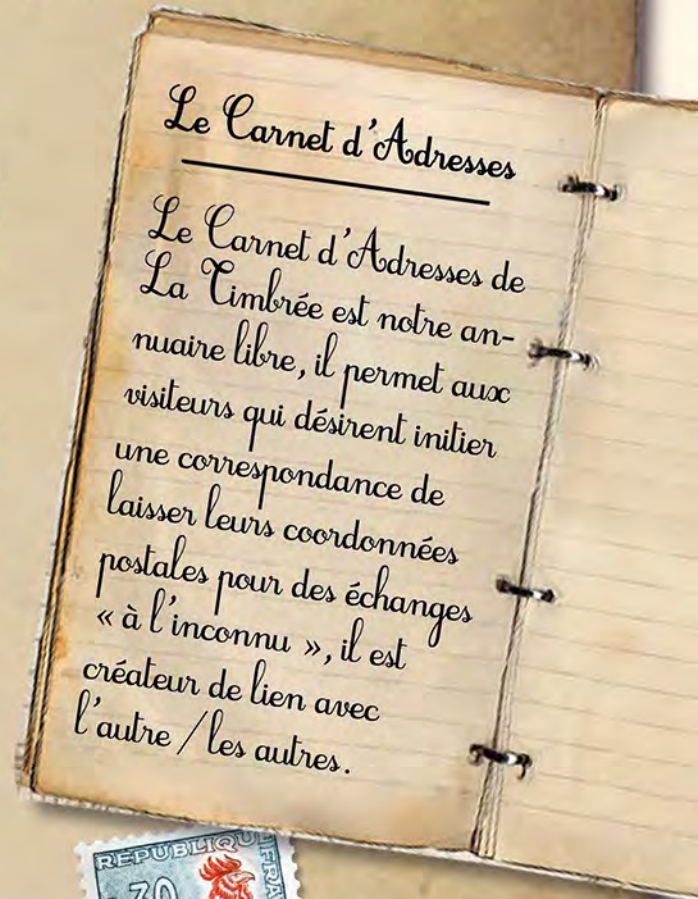 Le Carnet d'Adresses
Le Carnet d'Adresses de
La Timbrée est notre an-
nuaire libre, il permet aux
visiteurs qui désirent initier
une correspondance de
laisser leurs coordonnées
postales pour des échanges
« à l'inconnu », il est
créateur de lien avec
l'autre / les autres.
REPUBLIQUE FRA
30